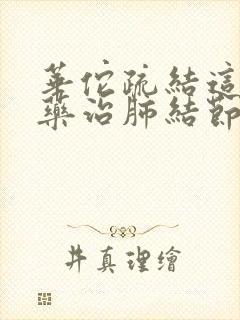 華佗疏結這
藥治肺結節
井真理繪